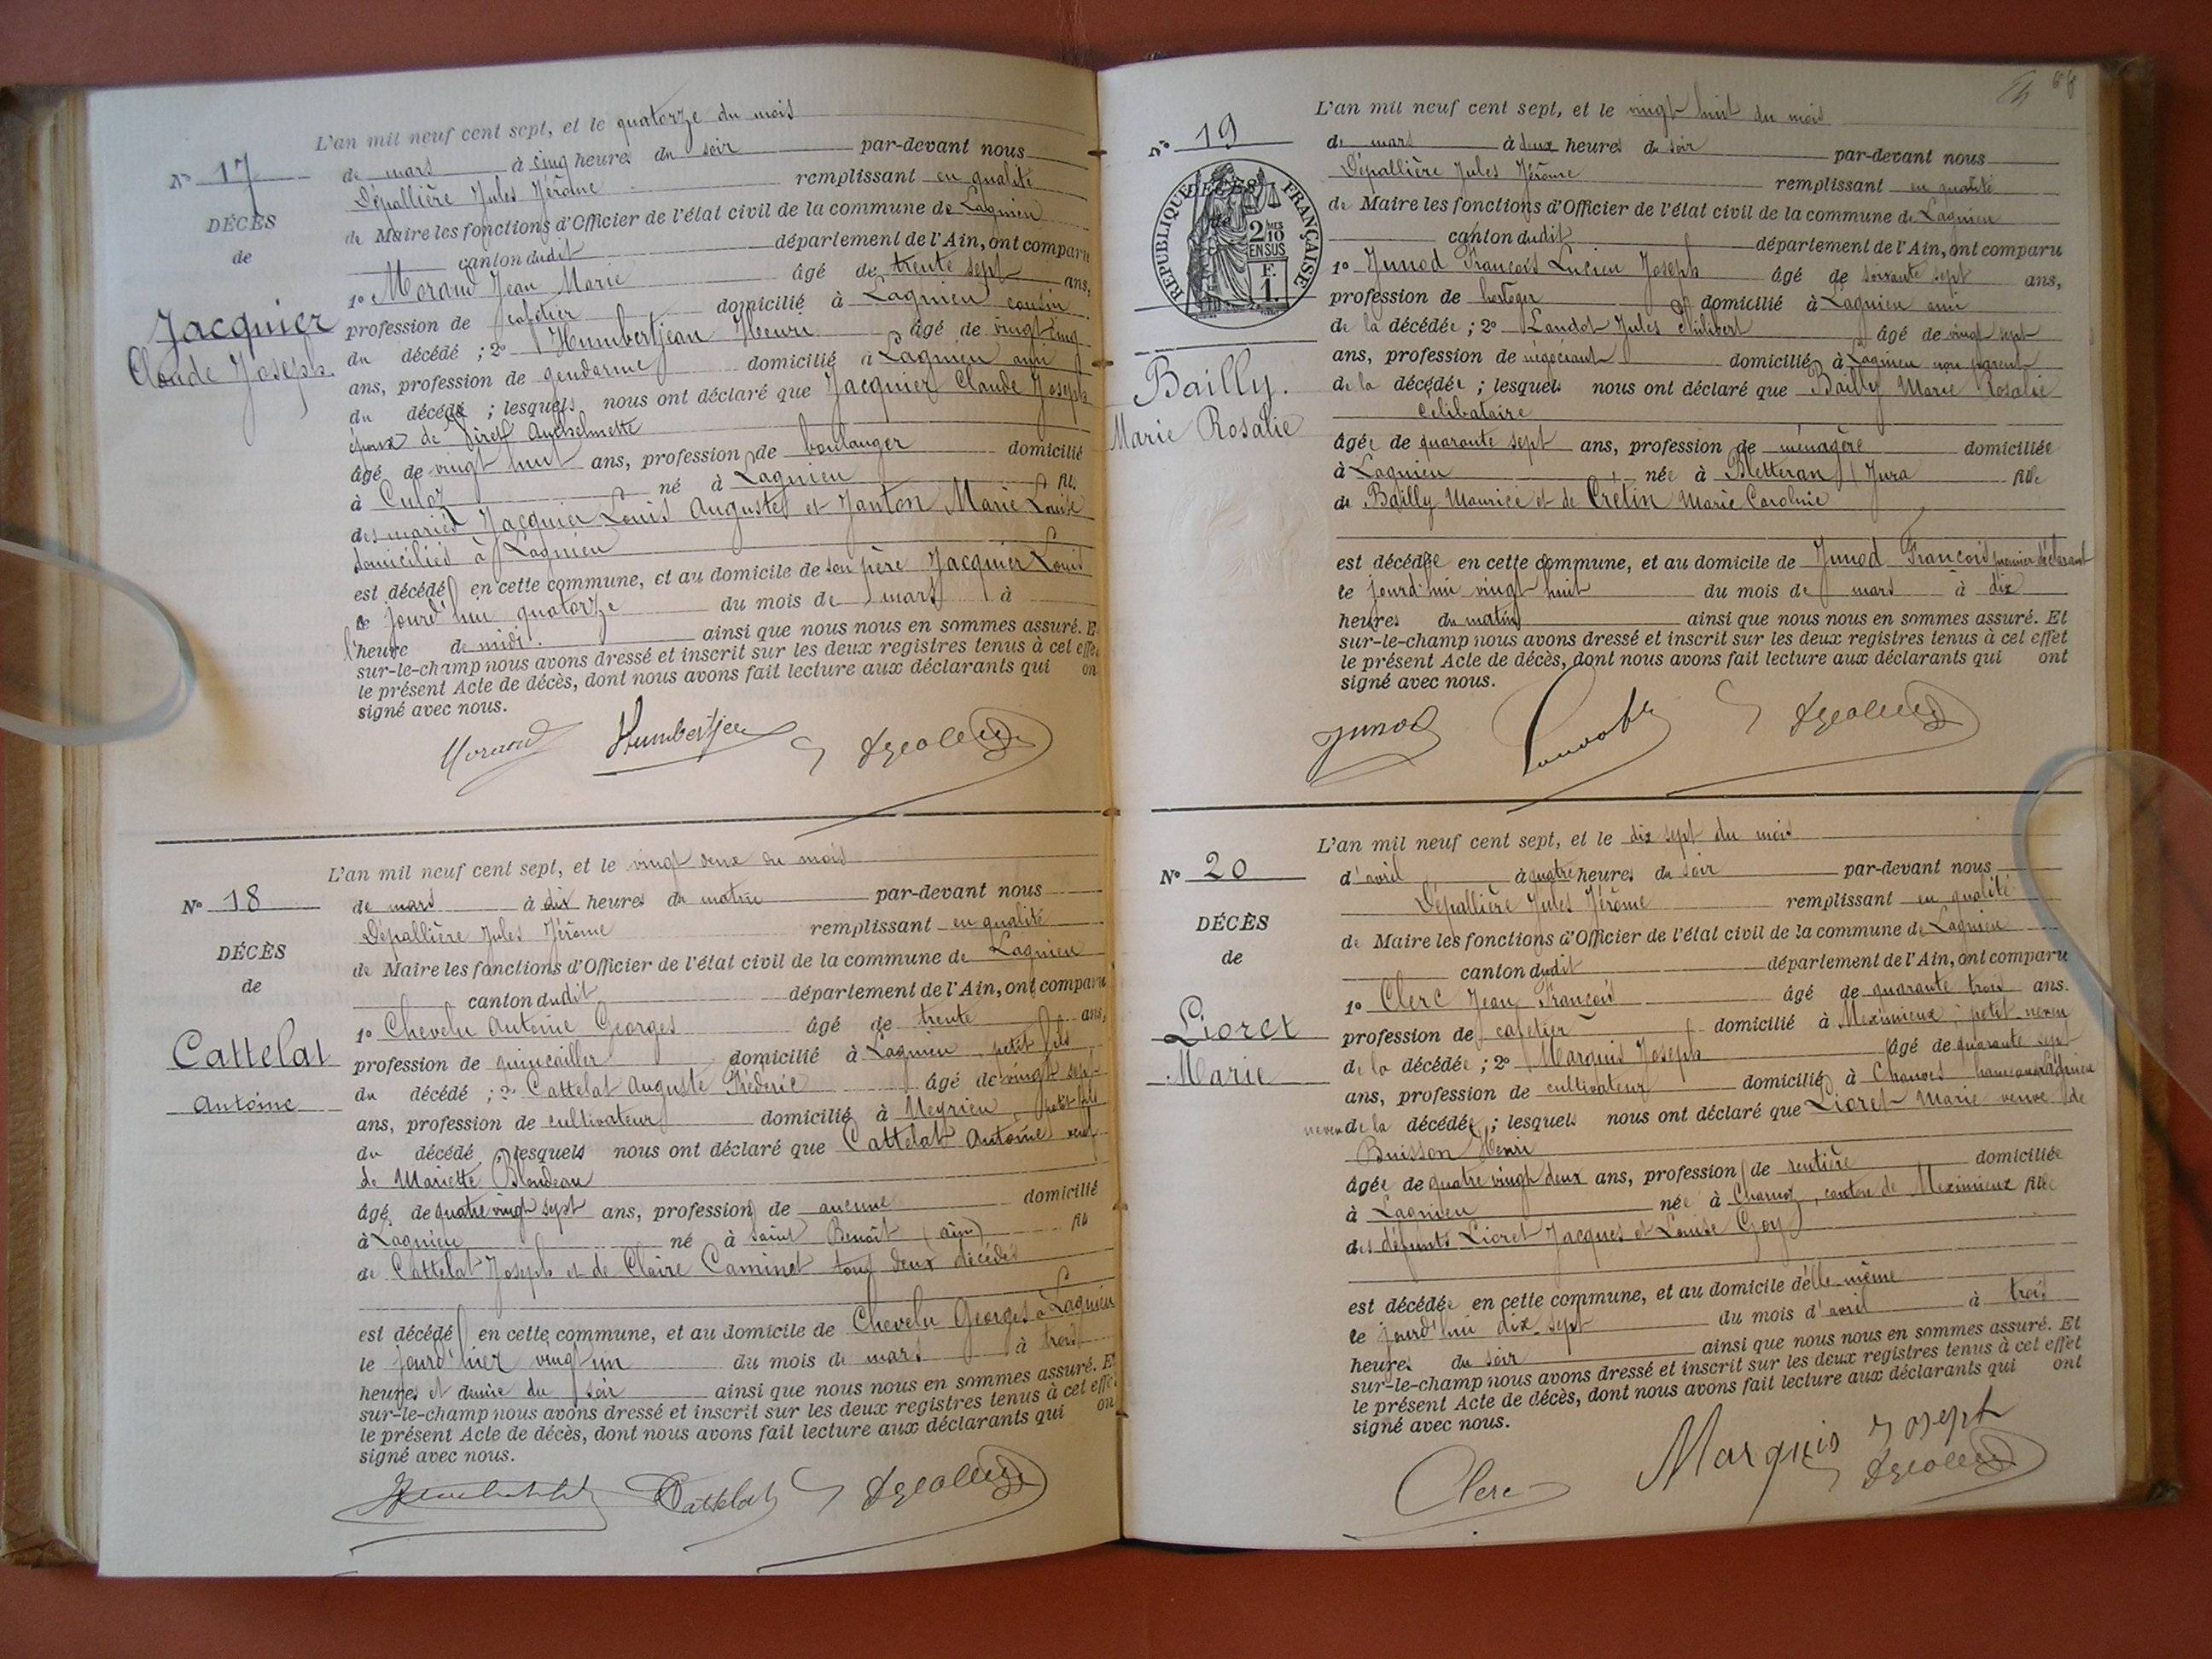 L'an mil neuf cent sept, et le quatorze du mois
N° 17
de mars à cinq heures du soir par-devant nous
Dépallière Jules Jérôme remplissant en qualité
DÉCÈS
de Maire les fonctions d'Officier de l'état civil de la commune de Lagnieu
de
canton dudit département de l'Ain, ont comparu
1° Morand Jean Marie âgé de trente sept ans,
Jacquier
profession de cafetier domicilié à Lagnieu cousin
Claude Joseph.
du décédé ; 2° Humbertjean Henri âgé de vingt cinq
ans, profession de gendarme domicilié à Lagnieu ami
du décédé ; lesquels nous ont déclaré que Jacquier Claude Joseph
époux de
âgé de vingt huit ans, profession de boulanger domicilié
à Culoz né à Lagnieu fils
des mariés Jacquier Louis Auguste et Janton Marie Louise
domiciliés à Lagnieu
est décédé en cette commune, et au domicile de son père Jacquier Louis
le jourd'hui quatorze du mois de mars à
l'heure de midi. ainsi que nous nous en sommes assuré. E
sur-le-champ nous avons dressé et inscrit sur les deux registres tenus à cet effe
le présent Acte de décès, dont nous avons fait lecture aux déclarants qui on
signé avec nous.
Morand Humbertjean
L'an mil neuf cent sept, et le vingt deux du mois
N° 18
de mars à dix heures du matin par-devant nous
Dépallière Jules Jérôme remplissant en qualité
DÉCÈS
de Maire les fonctions d'Officier de l'état civil de la commune de Lagnieu
de
canton dudit département de l'Ain, ont comparu
1° Chevelu Antoine Georges âgé de trente ans,
Cattelat
profession de quincailler domicilié à Lagnieu, petit fils
Antoine
du décédé ; 2° Cattelat Auguste Fréderic âgé de vingt sept
ans, profession de cultivateur domicilié à Meyrieu, petit fils
du décédé, lesquels nous ont déclaré que Cattelat Antoine veuf
de Mariette Blondeau
âgé de quatre vingt sept ans, profession de aucune domicilié
à Lagnieu né à Saint Benoit (ain) fils
de Cattelat Joseph et de Claire Caminet tous deux décédés
est décédé en cette commune, et au domicile de Chevelu Georges à Lagnieu
le jourd'hier vingt un du mois de mars à trois
heures et demie du soir ainsi que nous nous en sommes assuré. E
sur-le-champ nous avons dressé et inscrit sur les deux registres tenus à cet effe
le présent Acte de décès, dont nous avons fait lecture aux déclarants qui on
signé avec nous.
Cattelat
68
L'an mil neuf cent sept, et le vingt huit du mois
N° 19
de mars à deux heures du soir par-devant nous
Dépallière Jules Jérôme remplissant en qualité
RÉPUBLIQUE FRANÇAISE
DÉCÈS
de
2 MES 10
EN SUS
F.
1.
de Maire les fonctions d'Officier de l'état civil de la commune de Lagnieu
canton dudit département de l'Ain, ont comparu
1° Junod François Lucien Joseph âgé de soixante sept ans,
profession de horloger domicilié à Lagnieu ami
de la décédée ; 2° Landot Jules Philibert âgé de vingt sept
Bailly.
ans, profession de négociant domicilié à Lagnieu non parent
de la décédée ; lesquels nous ont déclaré que Bailly Marie Rosalie
Marie Rosalie
célibataire
âgée de quarante sept ans, profession de ménagère domiciliée
à Lagnieu née à Bletteran (Jura fille
de Bailly Maurice et de Crétin Marie Caroline
est décédée en cette commune, et au domicile de Junod François premier déclarant
le jourd'hui vingt huit du mois de mars à dix
heures du matin ainsi que nous nous en sommes assuré. Et
sur-le-champ nous avons dressé et inscrit sur les deux registres tenus à cet effet
le présent Acte de décès, dont nous avons fait lecture aux déclarants qui ont
signé avec nous.
Junod
L'an mil neuf cent sept, et le dix sept du mois
N° 20
d'avril à quatre heures du soir par-devant nous
Dépallière Jules Jérôme remplissant en qualité
DÉCÈS
de Maire les fonctions d'Officier de l'état civil de la commune de Lagnieu
de
canton dudit département de l'Ain, ont comparu
1° Clerc Jean François âgé de quarante trois ans.
Lioret
profession de cafetier domicilié à Meximieux, petit neveu
Marie
de la décédée ; 2° Marquis Joseph âgé de quarante sept
ans, profession de cultivateur domicilié à hameau Lagnieu
neveu de la décédée ; lesquels nous ont déclaré que Lioret Marie veuve de
Buisson Henri
âgée de quatre vingt deux ans, profession de rentière domiciliée
à Lagnieu née à Charnoz, canton de Meximieux fille
des défunts Lioret Jacques et Louise Goy
est décédée en cette commune, et au domicile d'elle-même
le jourd'hui dix-sept du mois d'avril à trois
heures du soir ainsi que nous nous en sommes assuré. Et
sur-le-champ nous avons dressé et inscrit sur les deux registres tenus à cet effet
le présent Acte de décès, dont nous avons fait lecture aux déclarants qui ont
signé avec nous.
Clerc Marquis Joseph